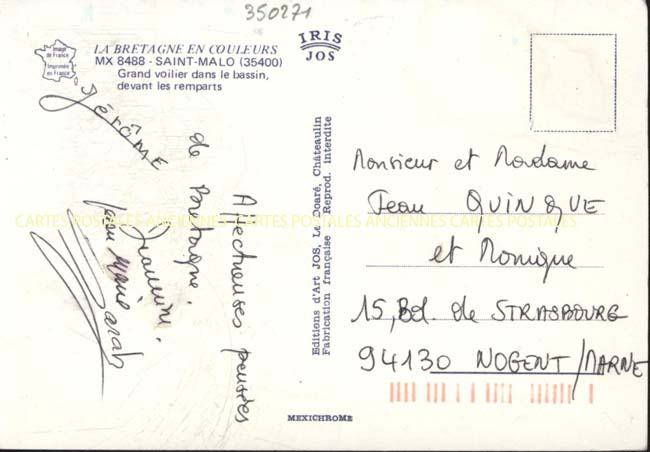 350271
Image
de France
Imprimée
en France
LA BRETAGNE EN COULEURS
MX 8488 - SAINT-MALO (35400)
Grand voilier dans le bassin,
devant les remparts
IRIS
JOS
Affectueuses pensées
de Bretagne.
Jeannine.
Jean Marie
Sarah
Jérôme
Editions d'Art JOS, Le Doaré, Châteaulin
Fabrication française - Reprod. interdite
MEXICHROME
Monsieur et Madame
Jean QUINQUE
et Monique
15, Bd. de STRASBOURG
94130 NOGENT/MARNE
CARTES POSTALES ANCIENNES CARTES POSTALES ANCIENNES CARTES POSTALES